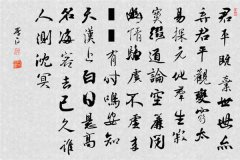 君平既棄世世亦
弃君平觀變窮太
易探元化群生寂
寞綴道論空簾閉
幽情騶虞不虛來
有時鳴安知
天漢上白日懸高
名海客去已久誰
人測沈冥